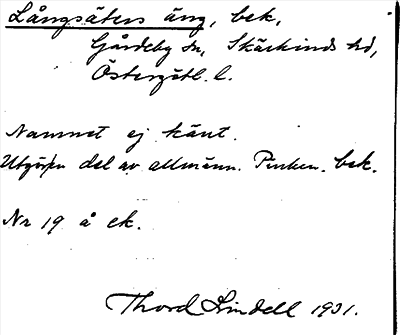 Långsäters äng, bek,
Gårdeby sn, Skärkinds hd,
Östergötl. l.
Namnet ej känt.
Utgör en del av allmänn. Pinken. bek.
Nr 19 å ek.
Thord Lindell 1931.